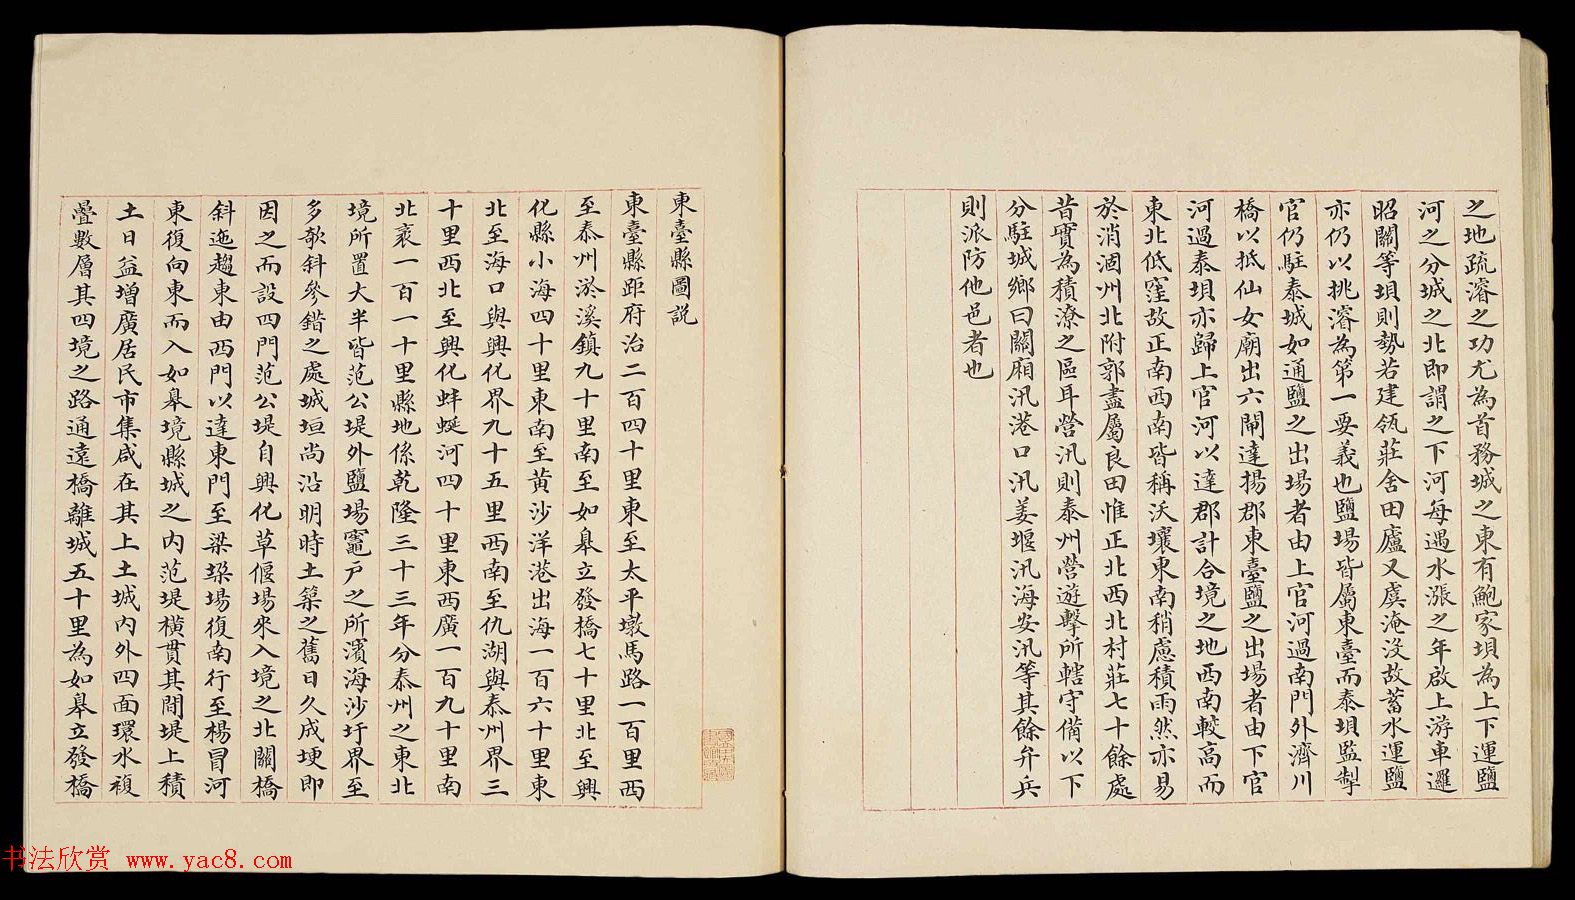 之地疏濬之功尤為首務城之東有鮑家垻為上下運鹽
河之分城之北即謂之下河每遇水漲之年啟上游車邏
昭關等垻則勢若建瓴莊舍田廬又虞淹沒故蓄水運鹽
亦仍以挑濬為第一要義也鹽場皆屬東臺而泰垻監掣
官仍駐泰城如通鹽之出場者由上官河過南門外濟川
橋以抵仙女廟出六閘達揚郡東臺鹽之出場者由下官
河過泰垻亦歸上官河以達郡計合境之地西南較高而
東北低窪故正南西南皆稱沃壤東南稍慮積雨然亦易
於消涸州北附郭盡屬良田惟正北西北村莊七十餘處
昔實為積潦之區耳營汛則泰州營遊擊所轄守備以下
分駐城鄉曰關廂汛港口汛姜堰汛海安汛等其餘弁兵
則派防他邑者也
東臺縣圖説
東臺縣距府治二百四十里東至太平墩馬路一百里西
至泰州淤溪鎮九十里南至如臯立發橋七十里北至興
化縣小海四十里東南至黃沙洋港出海一百六十里東
北至海口與興化界九十五里西南至仇湖與泰州界三
十里西北至興化蚌蜒河四十里東西廣一百九十里南
北袤一百一十里縣地係乾隆三十三年分泰州之東北
境所置大半皆范公堤外鹽場竈戶之所濱海沙圩界至
多欹斜參錯之處城垣尚沿明時土築之舊日久成埂即
因之而設四門范公堤自興化草偃場來入境之北關橋
斜迤趨東由西門以達東門至梁垜場復南行至楊冒河
東復向東而入如臯境縣城之內范堤橫貫其間堤上積
土日益增廣居民市集咸在其上土城內外四面環水複
疊數層其四境之路通遠橋離城五十里為如臯立發橋
书法欣赏 www.yac8.com